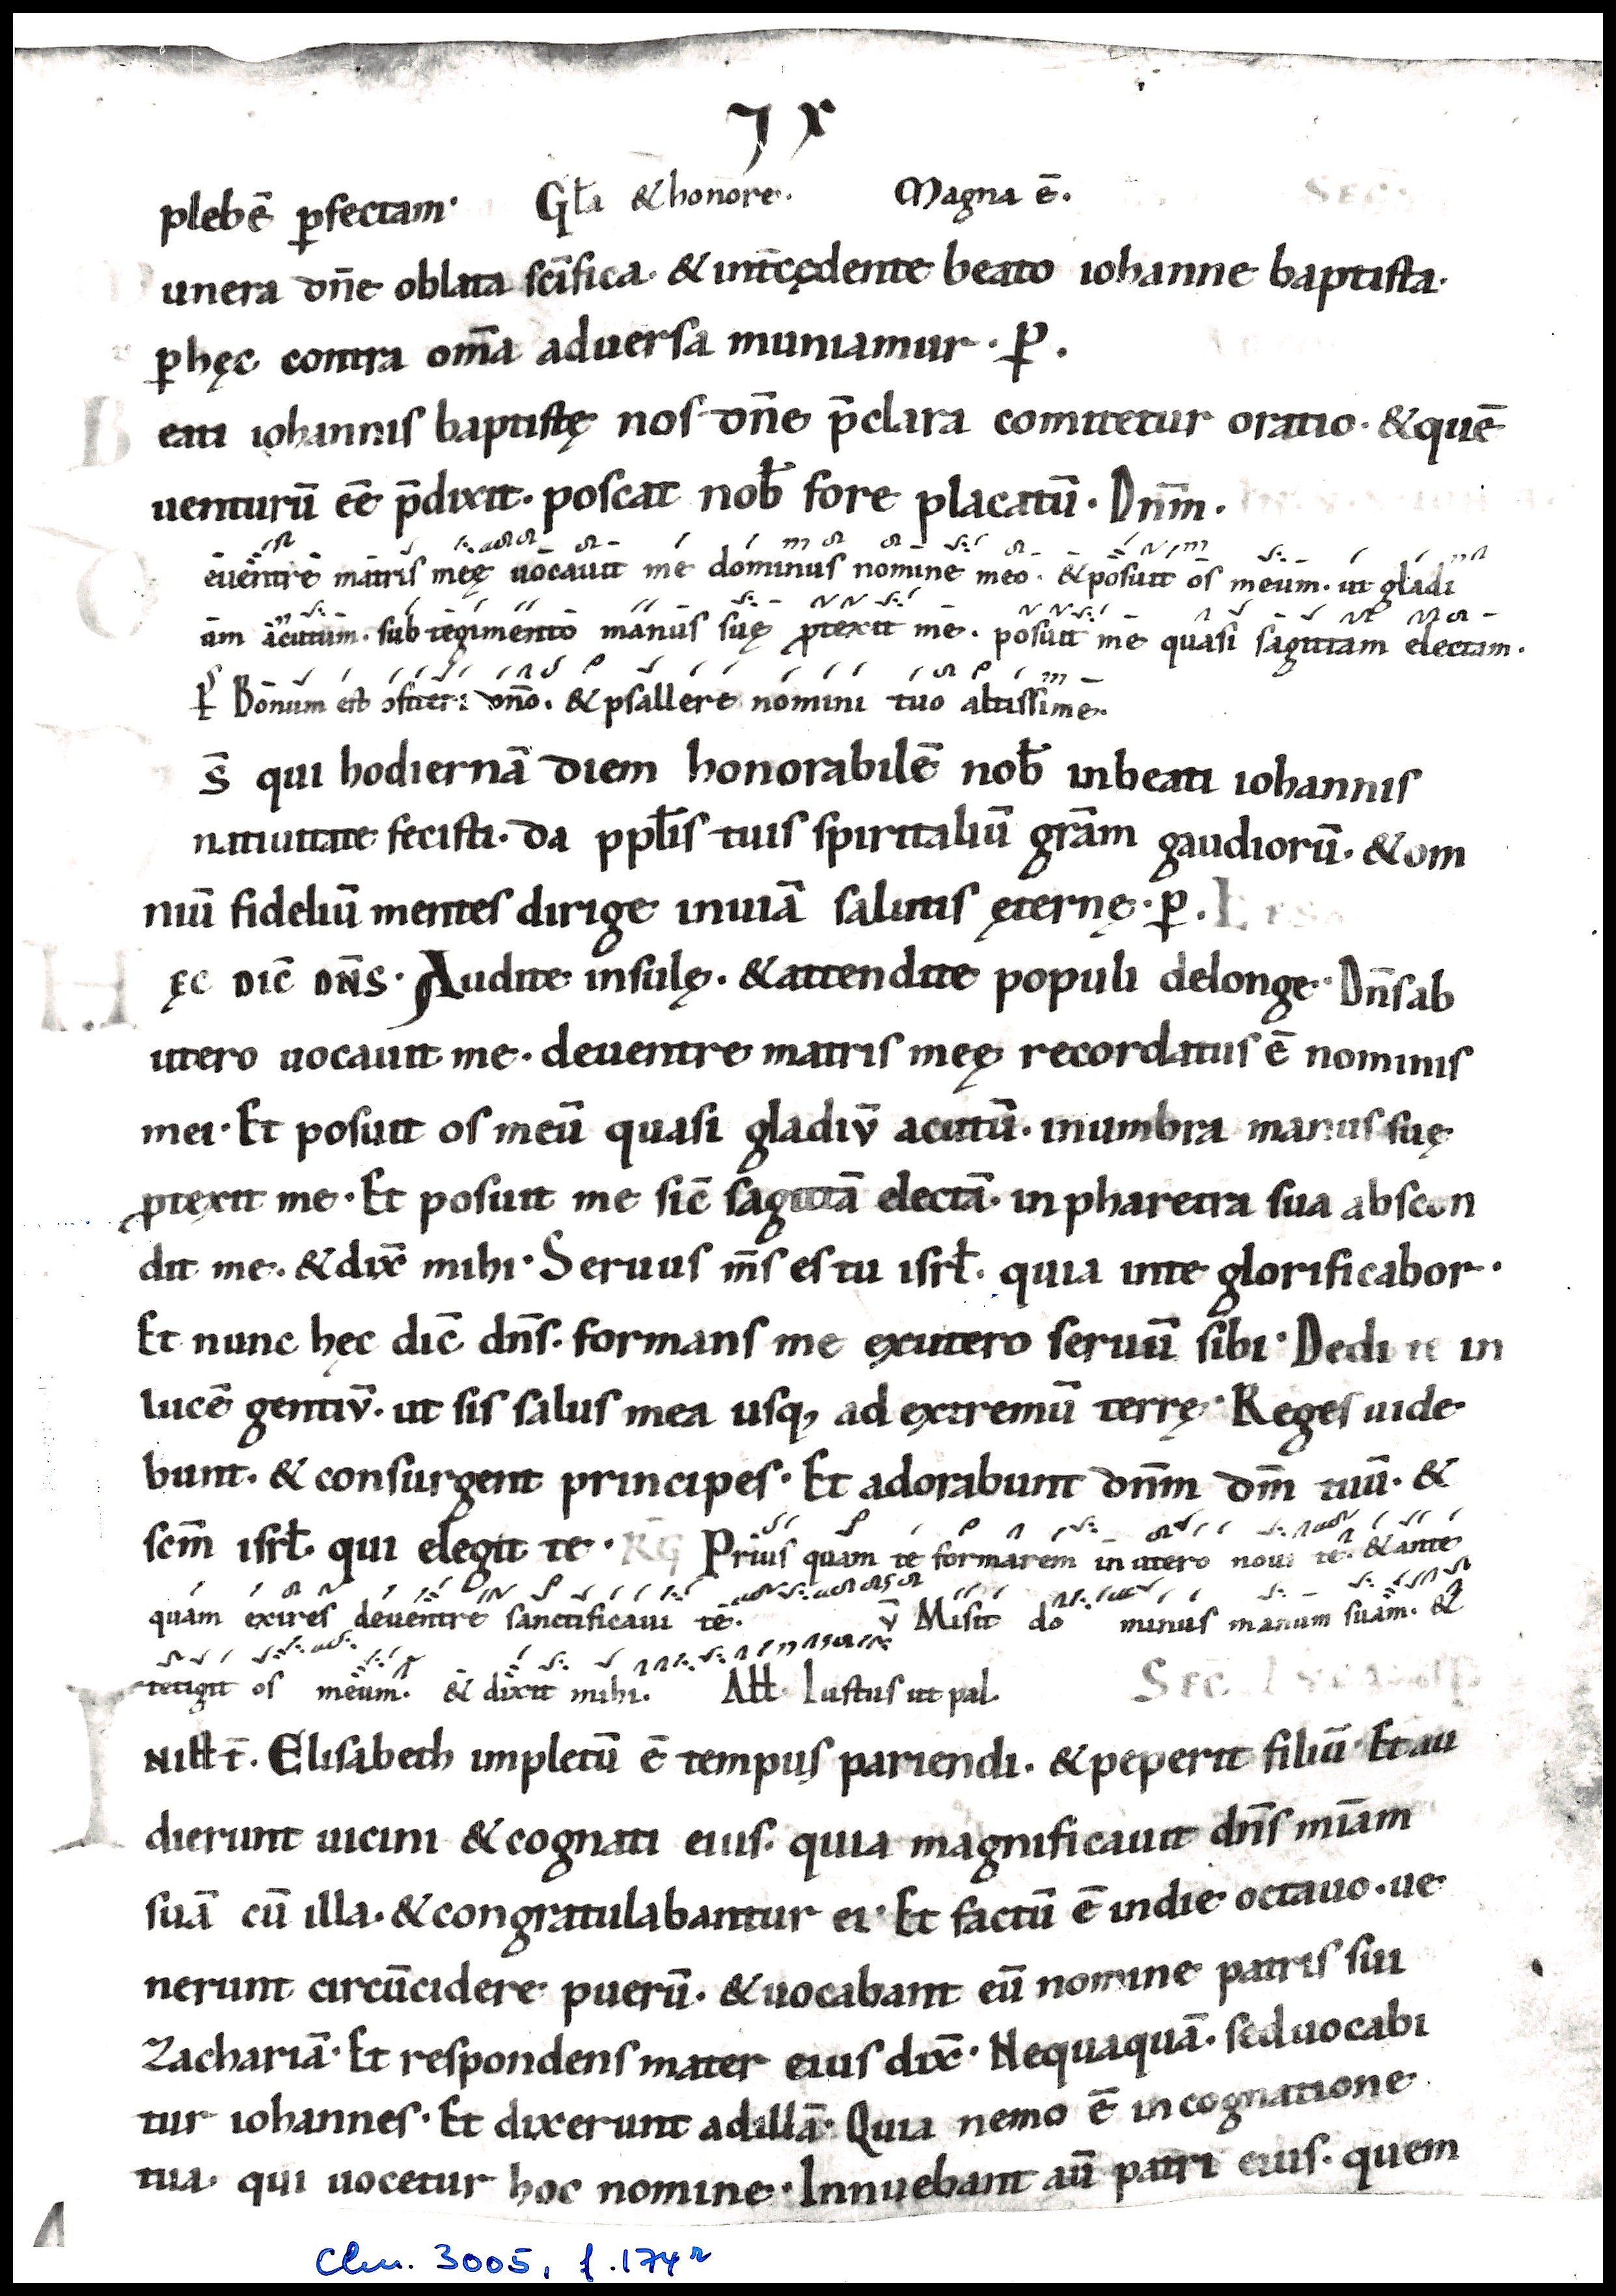 plebē ꝑfectam· Gl̄a & honore· Magna ē.
unera dn̄e oblata sc̄ifica· & int̄cędente beato iohanne baptista·
ꝑ hęc contra om̄a aduersa muniamur· ꝑ.
B eati iohannis baptistę nos dn̄e p̄clara comitetur oratio· & quē
uenturū eē p̄dixit· poscat nob̄ fore placatū· Dn̄m.
D euentre matris meę uocauit me dominus nomine meo· & posuit os meum· ut gladi
um acutum· sub tegimento manus suę ꝓtexit me· posuit me quasi sagittam electam·
Bonum est ɔfiteri dn̄o· & psallere nomini tuo altissime·
s̄ qui hodiernā diem honorabilē nob̄ inbeati iohannis
natiuitate fecisti· da ppl̄is tuis spiritaliū gr̄am gaudiorū· & om
niū fideliū mentes dirige inuiā salutis ęternę· ꝑ.
H ĘC DIC̄ DN̄S· Audite insulę· & attendite populi delonge· Dn̄s ab
utero uocauit me· deuentre matris meę recordatus ē nominis
mei· Et posuit os meū quasi gladiv̄ acutū· inumbra manus suę
ꝓtexit me· Et posuit me sic̄ sagittā electā· in pharetra sua abscon
dit me· & dix̄ mihi· Seruus m̄s es tu isrł· quia inte glorificabor·
Et nunc hęc dic̄ dn̄s· formans me exutero seruū sibi· Dedi te in
lucē gentiv̄· ut sis salus mea usq; ad extremū terrę· Reges uide
bunt· & consurgent principes· Et adorabunt dn̄m dm̄ tuū· &
sc̄m isrł· qui elegit te· R̄G Prius quam te formarem in utero noui te· & ante
quam exires deuentre sanctificaui te· v̄ Misit do minus manum suam· &
tetigit os meum· & dixit mihi· Aƚƚ Iustus ut pal·
I Niƚƚ t̄· Elisabeth impletū ē tempus pariendi· & peperit filiū· Et au
dierunt uicini & cognati eius· quia magnificauit dn̄s mīam
suā cū illa· & congratulabantur ei· Et factū ē indie octauo· ue
nerunt circūcidere puerū· & uocabant eū nomine patris sui
Zachariā· Et respondens mater eius dix̄· Nequaquā· sed uocabi
tur iohannes· Et dixerunt ad illā· Quia nemo ē in cognatione
tua· qui uocetur hoc nomine· Innuebant aū patri eius· quem
Clm. 3005, f. 174r